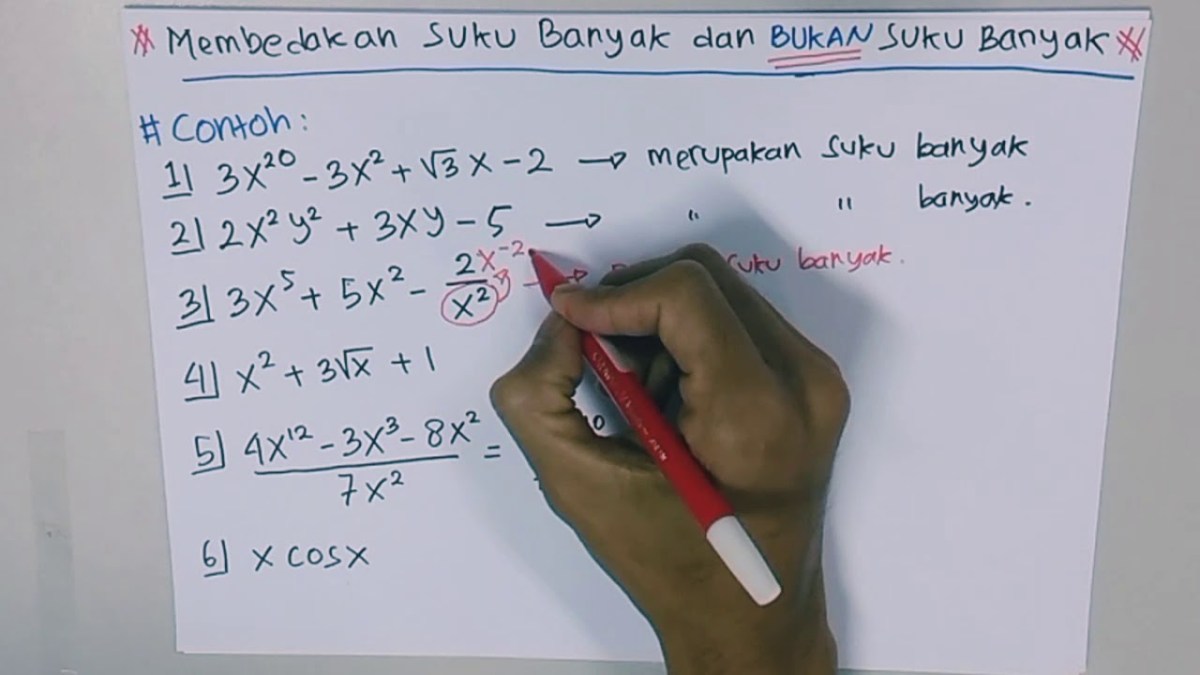 Membedakan Suku Banyak dan BUKAN Suku Banyak
# Contoh:
1) 3x²⁰ - 3x² + √3 x - 2 → merupakan suku banyak
2) 2x² y² + 3xy - 5 → " " banyak.
3) 3x⁵ + 5x² - 2/x² x⁻² → suku banyak.
4) x² + 3√x + 1
5) (4x¹² - 3x³ - 8x²)/(7x²) =
6) x cos x